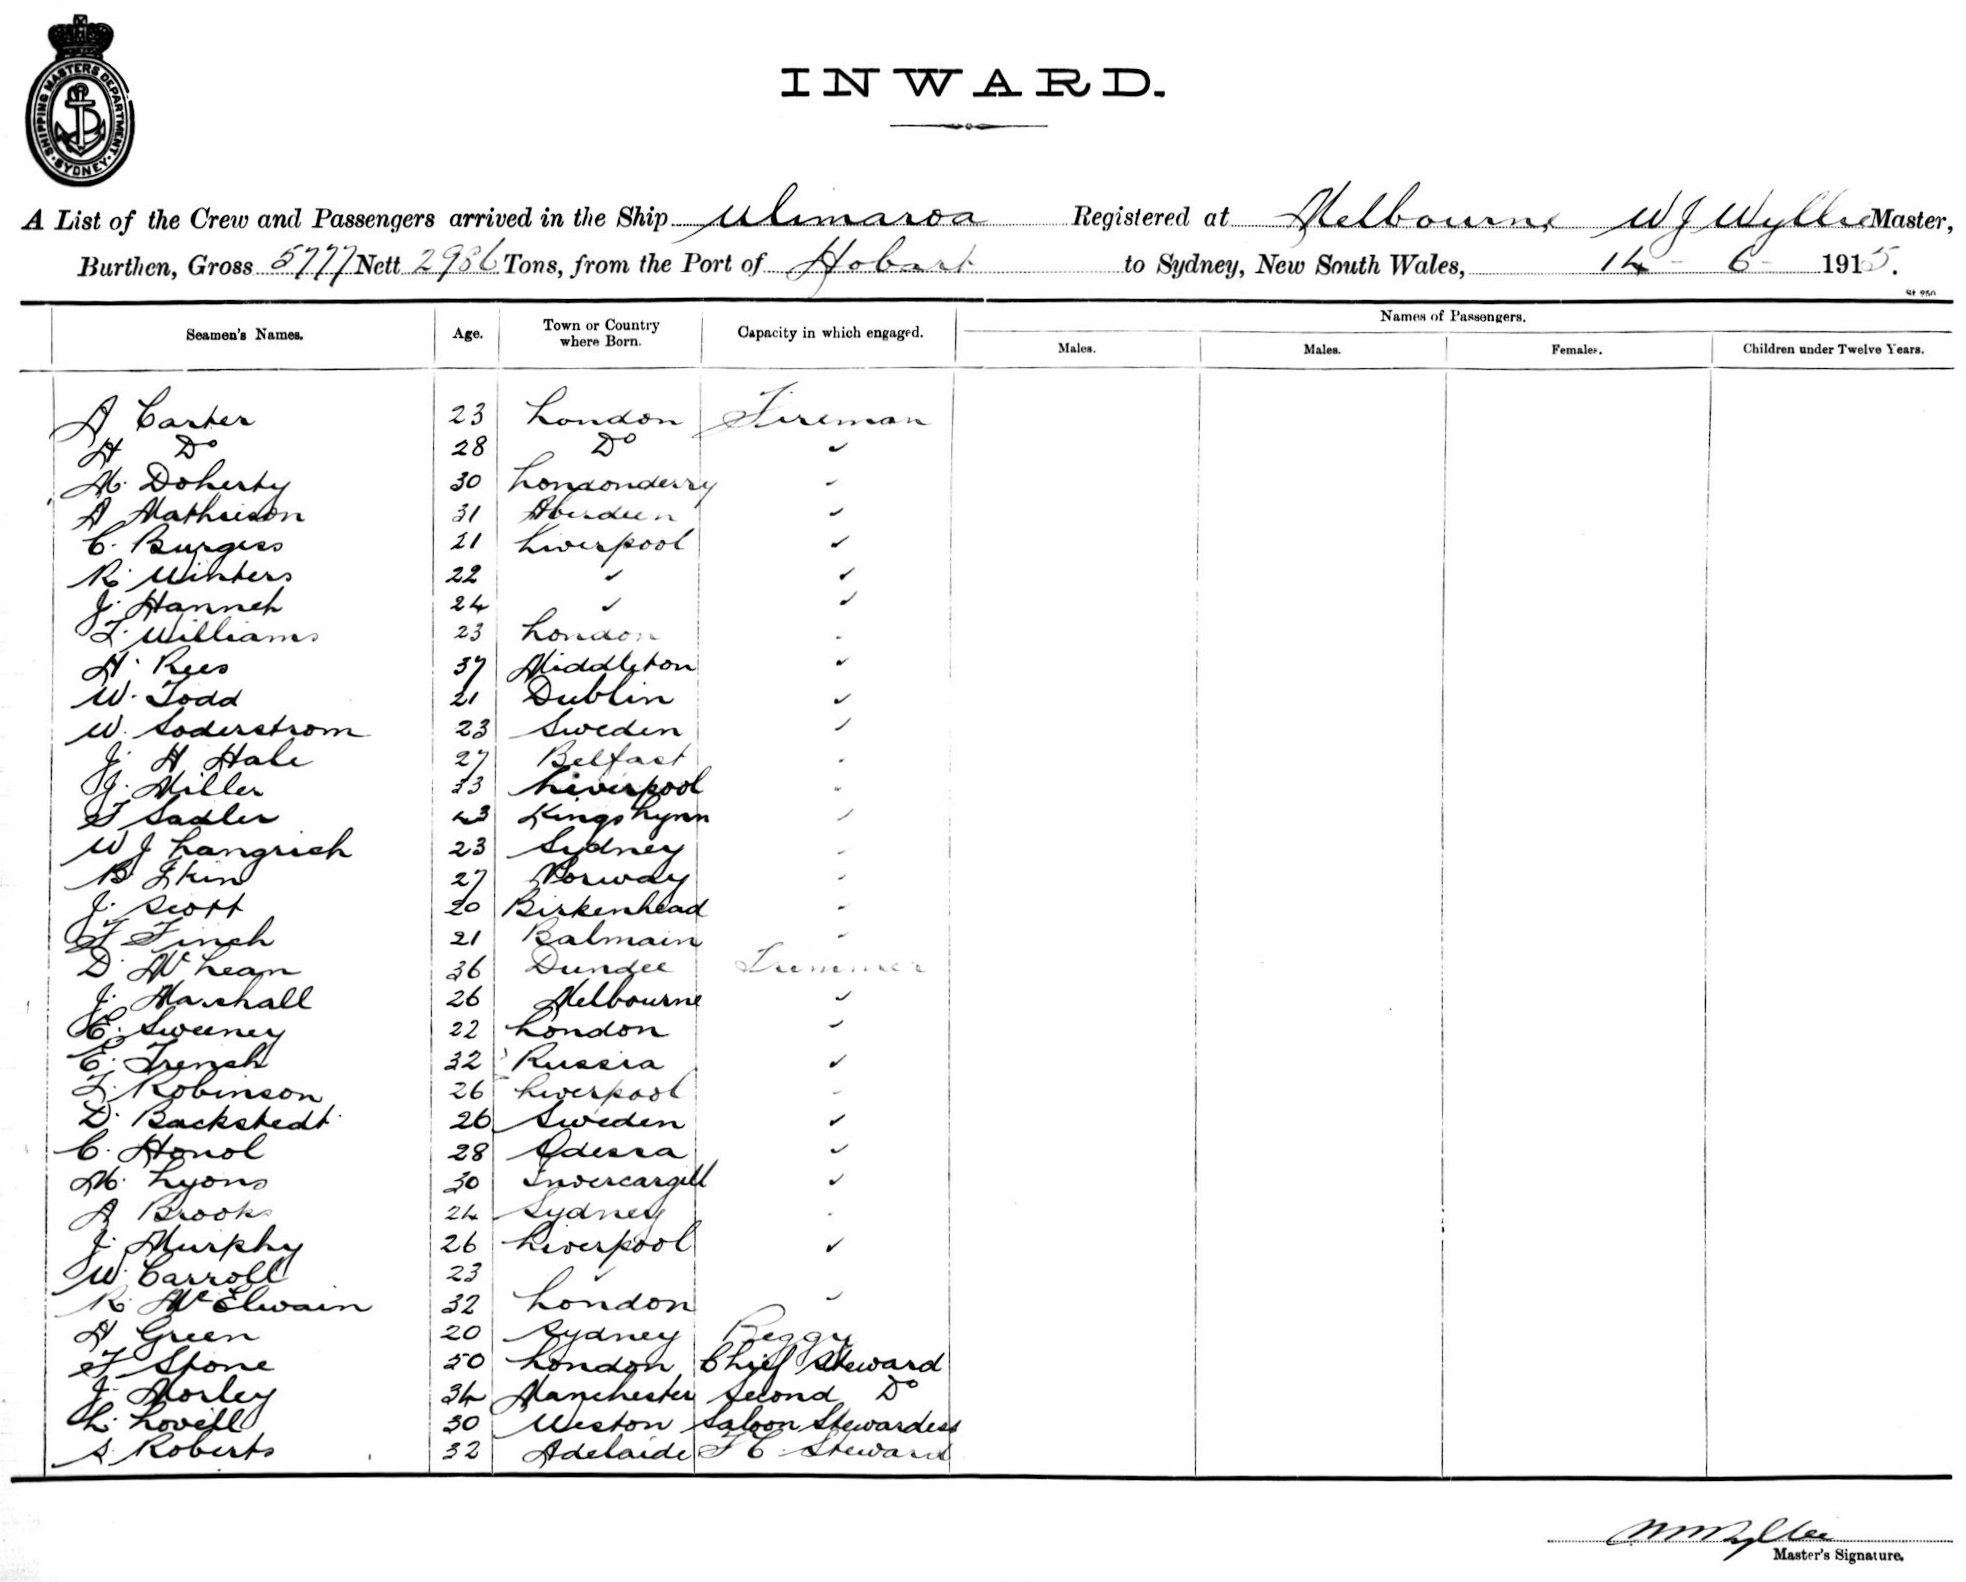 SHIPPING MASTERS DEPARTMENT. SYDNEY.
INWARD.
A List of the Crew and Passengers arrived in the Ship Ulimaroa Registered at Melbourne W J Wyllie Master,
Burthen, Gross 5777 Nett 2986 Tons, from the Port of Hobart to Sydney, New South Wales, 14 - 6 - 1915.
Names of Passengers.
Seamen's Names. Age. Town or Country where Born. Capacity in which engaged. Males. Males. Females. Children under Twelve Years.
A Carter 23 London Fireman
H Do 28 Do ✓
M. Doherty 30 Londonderry ✓
A Mathieson 31 Aberdeen ✓
C. Burgess 21 Liverpool ✓
R. Winters 22 ✓ ✓
J. Hanneh 24 ✓ ✓
F. Williams 23 London
H. Rees 37 Middleton ✓
W. Todd 21 Dublin ✓
W. Soderstrom 23 Sweden ✓
J. H Hale 27 Belfast
J. Miller 33 Liverpool
F Sadler 43 Kings Lynn ✓
W J Langrish 23 Sydney
B 27 Norway
J. Scott 20 Birkenhead
F Finch 21 Balmain
D. McLean 36 Dundee Trimmer
J. Marshall 26 Melbourne ✓
E. Sweeney 22 London ✓
E. French 32 Russia ✓
F. Robinson 26 Liverpool
D. Backstedt 26 Sweden ✓
C. Honol 28 Odessa ✓
M. Lyons 30 Invercargill ✓
A Brooks 24 Sydney
J. Murphy 26 Liverpool ✓
W. Carroll 23 ✓
R. McElwain 32 London ✓
A Green 20 Sydney Peggy
F Stone 50 London Chief Steward
J. Morley 34 Manchester Second Do
L. Lovell 30 Weston Saloon Stewardess
S. Roberts 32 Adelaide F C Steward
W J Wyllie
Master's Signature.